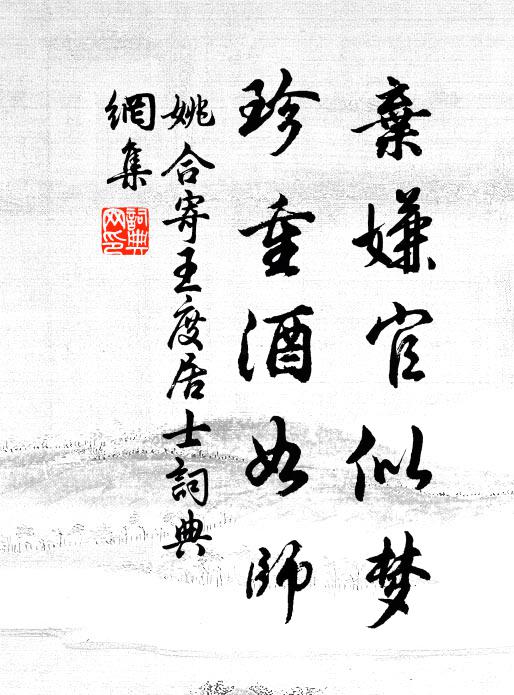 棄嫌官似梦
珍重酒如師
姚合寄王度居士詞典
網集
詞典網印